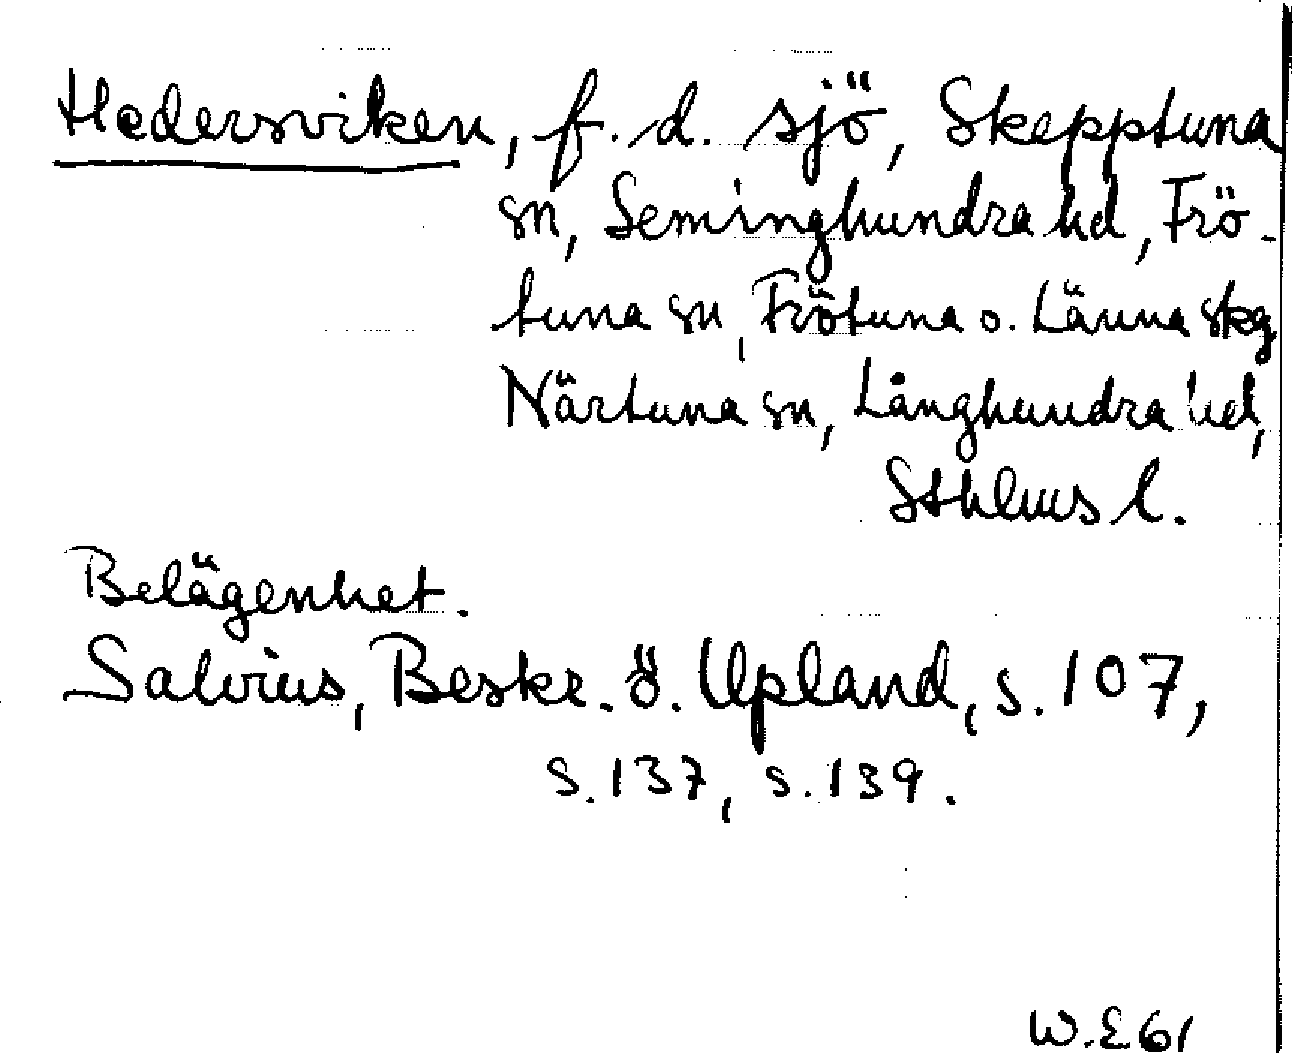 Hedersviken, f. d. sjö, Skepptuna
sn, Seminghundra hd, Frö-
tuna sn, Frötuna o. Länna skg
Närtuna sn, Långhundra hd,
Sthlms l.
Belägenhet.
Salvius, Beskr. ö. Upland, s. 107,
s. 137, s. 139.
W.E 61